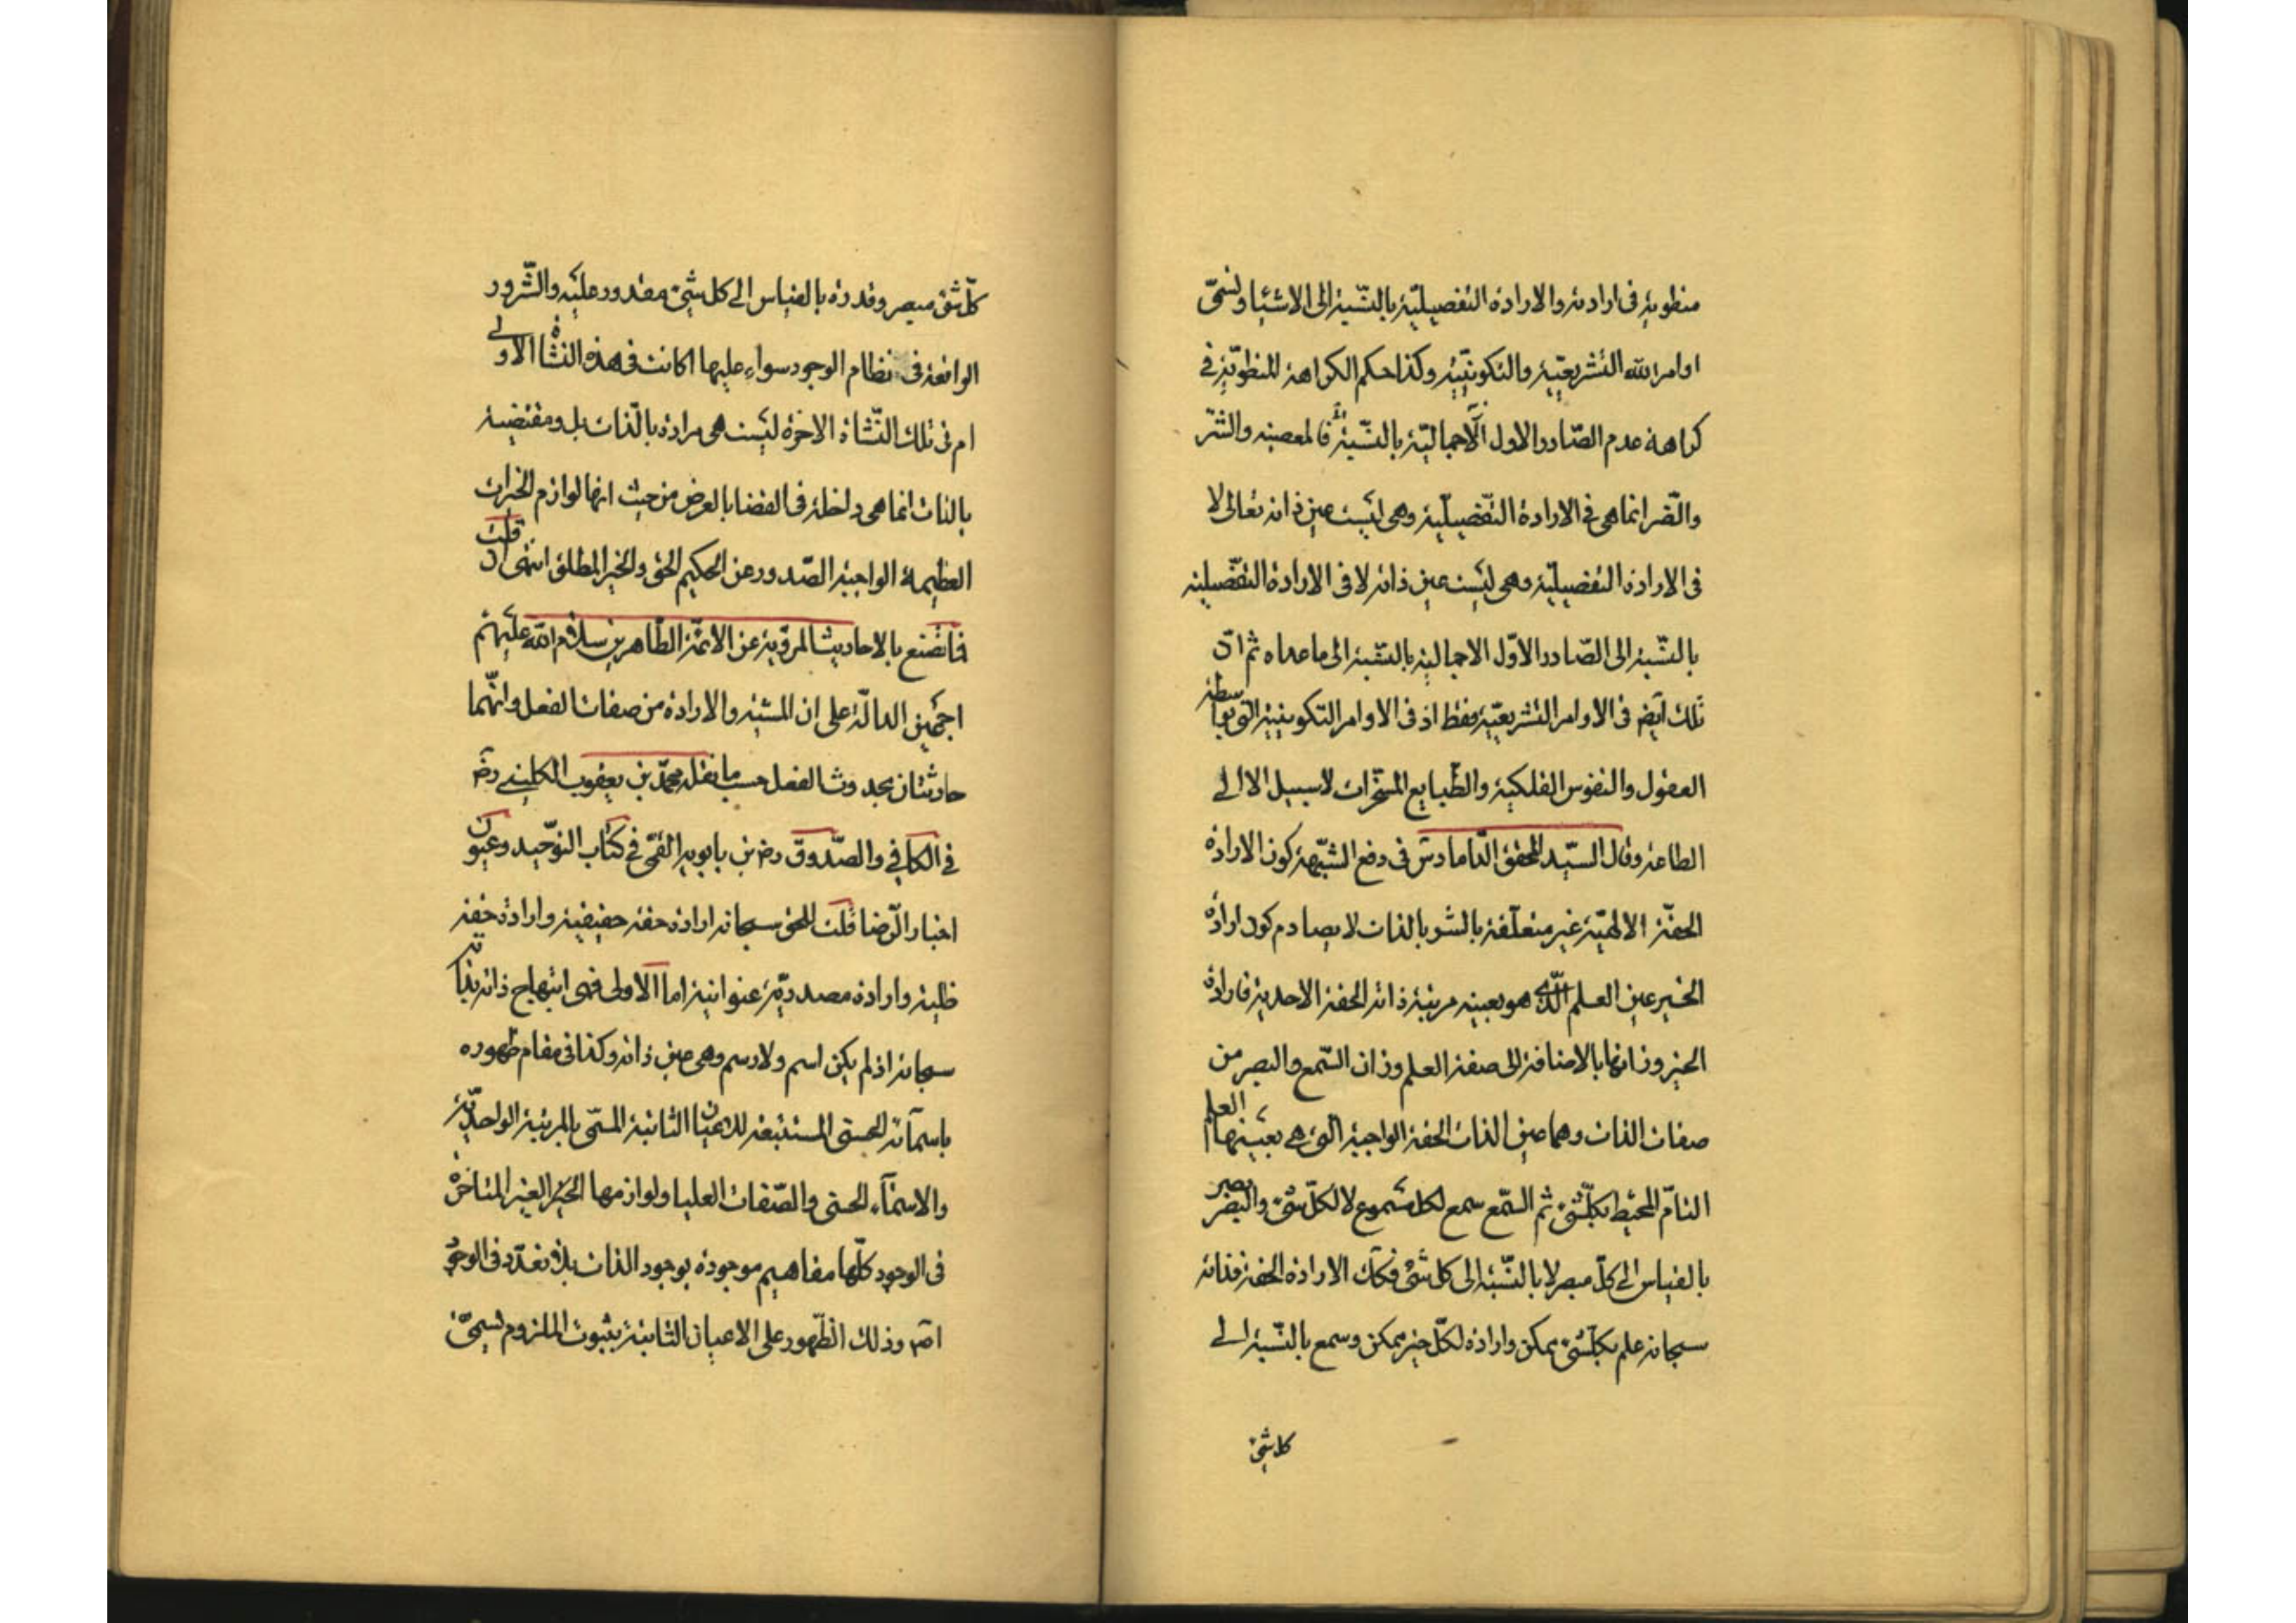 منطوية فى ارادته والارادة التفصيلية بالنسبة الى الاشيا وتسمى
اوامر الله التشريعية والتكوينية وكذا حكم الكراهة المنطوية فى
كراهة عدم الصادر الاول الاجمالية بالنسبة فالمعصية والشر
والضر انما هى فى الارادة التفصيلية وهى ليست عين ذاته تعالى لا
فى الارادة التفصيلية وهى ليست عين ذاته لا فى الارادة التفصيلية
بالنسبة الى الصادر الاول الاجمالية بالنسبة الى ما عداه ثم ان
تلك ايض فى الاوامر التشريعية فقط اذ فى الاوامر التكوينية التى بواسطة
العقول والنفوس الفلكية والطبايع المسخرات لا سبيل الا الى
الطاعة وقال السيد المحقق الداماد س فى دفع الشبهة كون الارادة
الحقة الالهية غير متعلقة بالشر بالذات لا يصادم كون ارادة
الخير عين العلم الذى هو بعينه مرتبة ذاته الحقة الاحدية فارادة
الخير وزانها بالاضافة الى صفة العلم وزان السمع والبصر من
صفات الذات وهما عين الذات الحقة الواجبة التى هى بعينها العلم
التام المحيط بكل شئ ثم السمع سمع لكل مسموع لا لكل شئ والبصر بصر
بالقياس الى كل مبصر لا بالنسبة الى كل شئ فكك الارادة الحقة فذاته
سبحانه علم بكل شئ ممكن وارادة لكل خير ممكن وسمع بالنسبة الى
كل شئ
كل شئ مبصر وقدرة بالقياس الى كل شئ مقدور عليه والشرور
الواقعة فى نظام الوجود سواء عليها اكانت فى هذه النشاة الاولى
ام فى تلك النشاة الاخرة ليست هى مرادة بالذات بل ومقتضية
بالذات انما هى داخلة فى القضا بالعرض من حيث انها لوازم الخيرات
العظيمة الواجبة الصدور عن الحكيم الحق والخير المطلق انتهى ان قلت
فما تصنع بالاحاديث المروية عن الائمة الطاهرين سلام الله عليهم
اجمعين الدالة على ان المشية والارادة من صفات الفعل وانهما
حادثتان بحدوث الفعل حسب ما نقله محمد بن يعقوب الكلينى رض
فى الكافى والصدوق رض بن بابويه القمى فى كتاب التوحيد وعيون
اخبار الرضا قلت للحق سبحانه ارادة حقة حقيقية وارادة حقة
ظلية وارادة مصدرية عنوانية اما الاولى فهى ابتهاج ذاته بذاته
سبحانه اذ لم يكن اسم ولا رسم وهى عين ذاته وكذا فى مقام ظهوره
باسمائه الحسنى المستتبعة للاعيان الثابتة المسمى بالمرتبة الواحدية
والاسماء الحسنى والصفات العليا ولوازمها الغير المتاخرة
فى الوجود كلها مفاهيم موجودة بوجود الذات بلا تعدد فى الوجود
اصم وذلك الظهور على الاعيان الثابتة بثبوت الملزوم تسمى